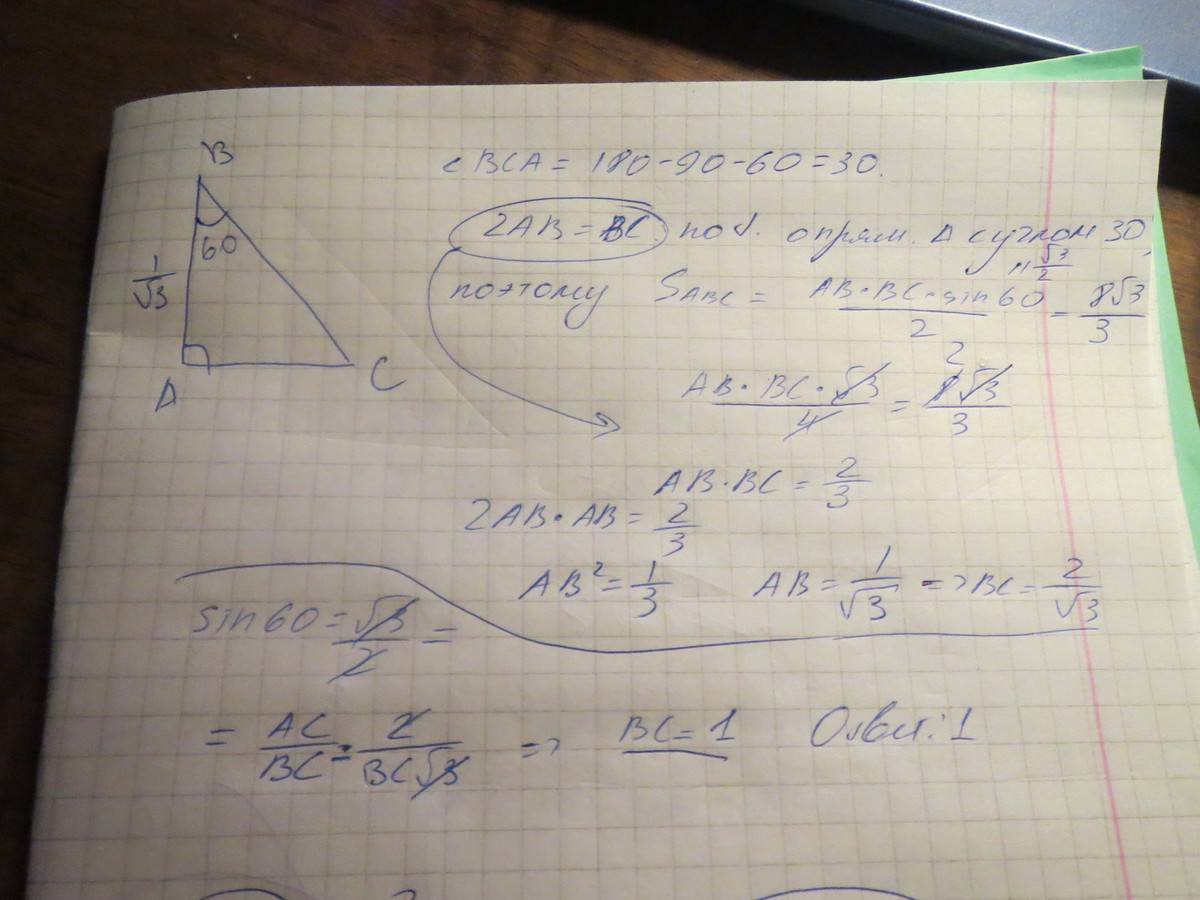 B
60
1/√3
A
C
∠BCA = 180-90-60=30.
2AB=BC по о прям. Δ с углом 30,
поэтому S ABC = AB·BC·sin60/2 = 8√3/3
"√3/2
AB·BC·√3/4 = 8√3/3
2
AB·BC = 2/3
2AB·AB = 2/3
AB² = 1/3 AB = 1/√3 => BC = 2/√3
sin60 = √3/2 =
= AC/BC = 2/BC√3 => BC = 1 Ответ: 1